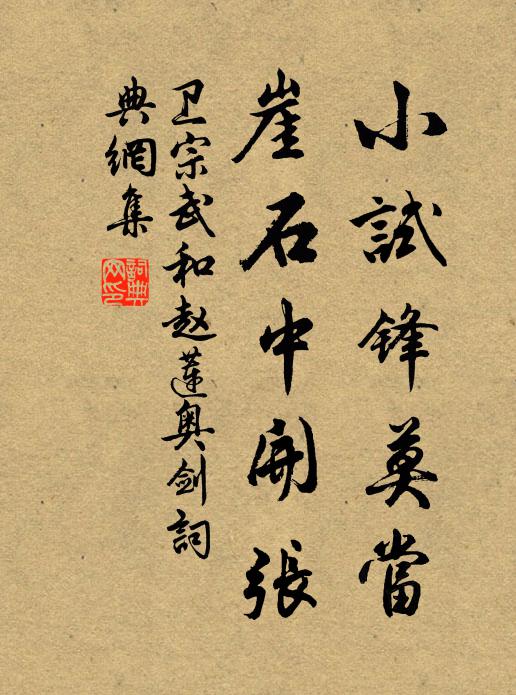 小試鋒莫當
崖石中開張
卫宗武和赵莲奥剑詞
典網集
詞典网印